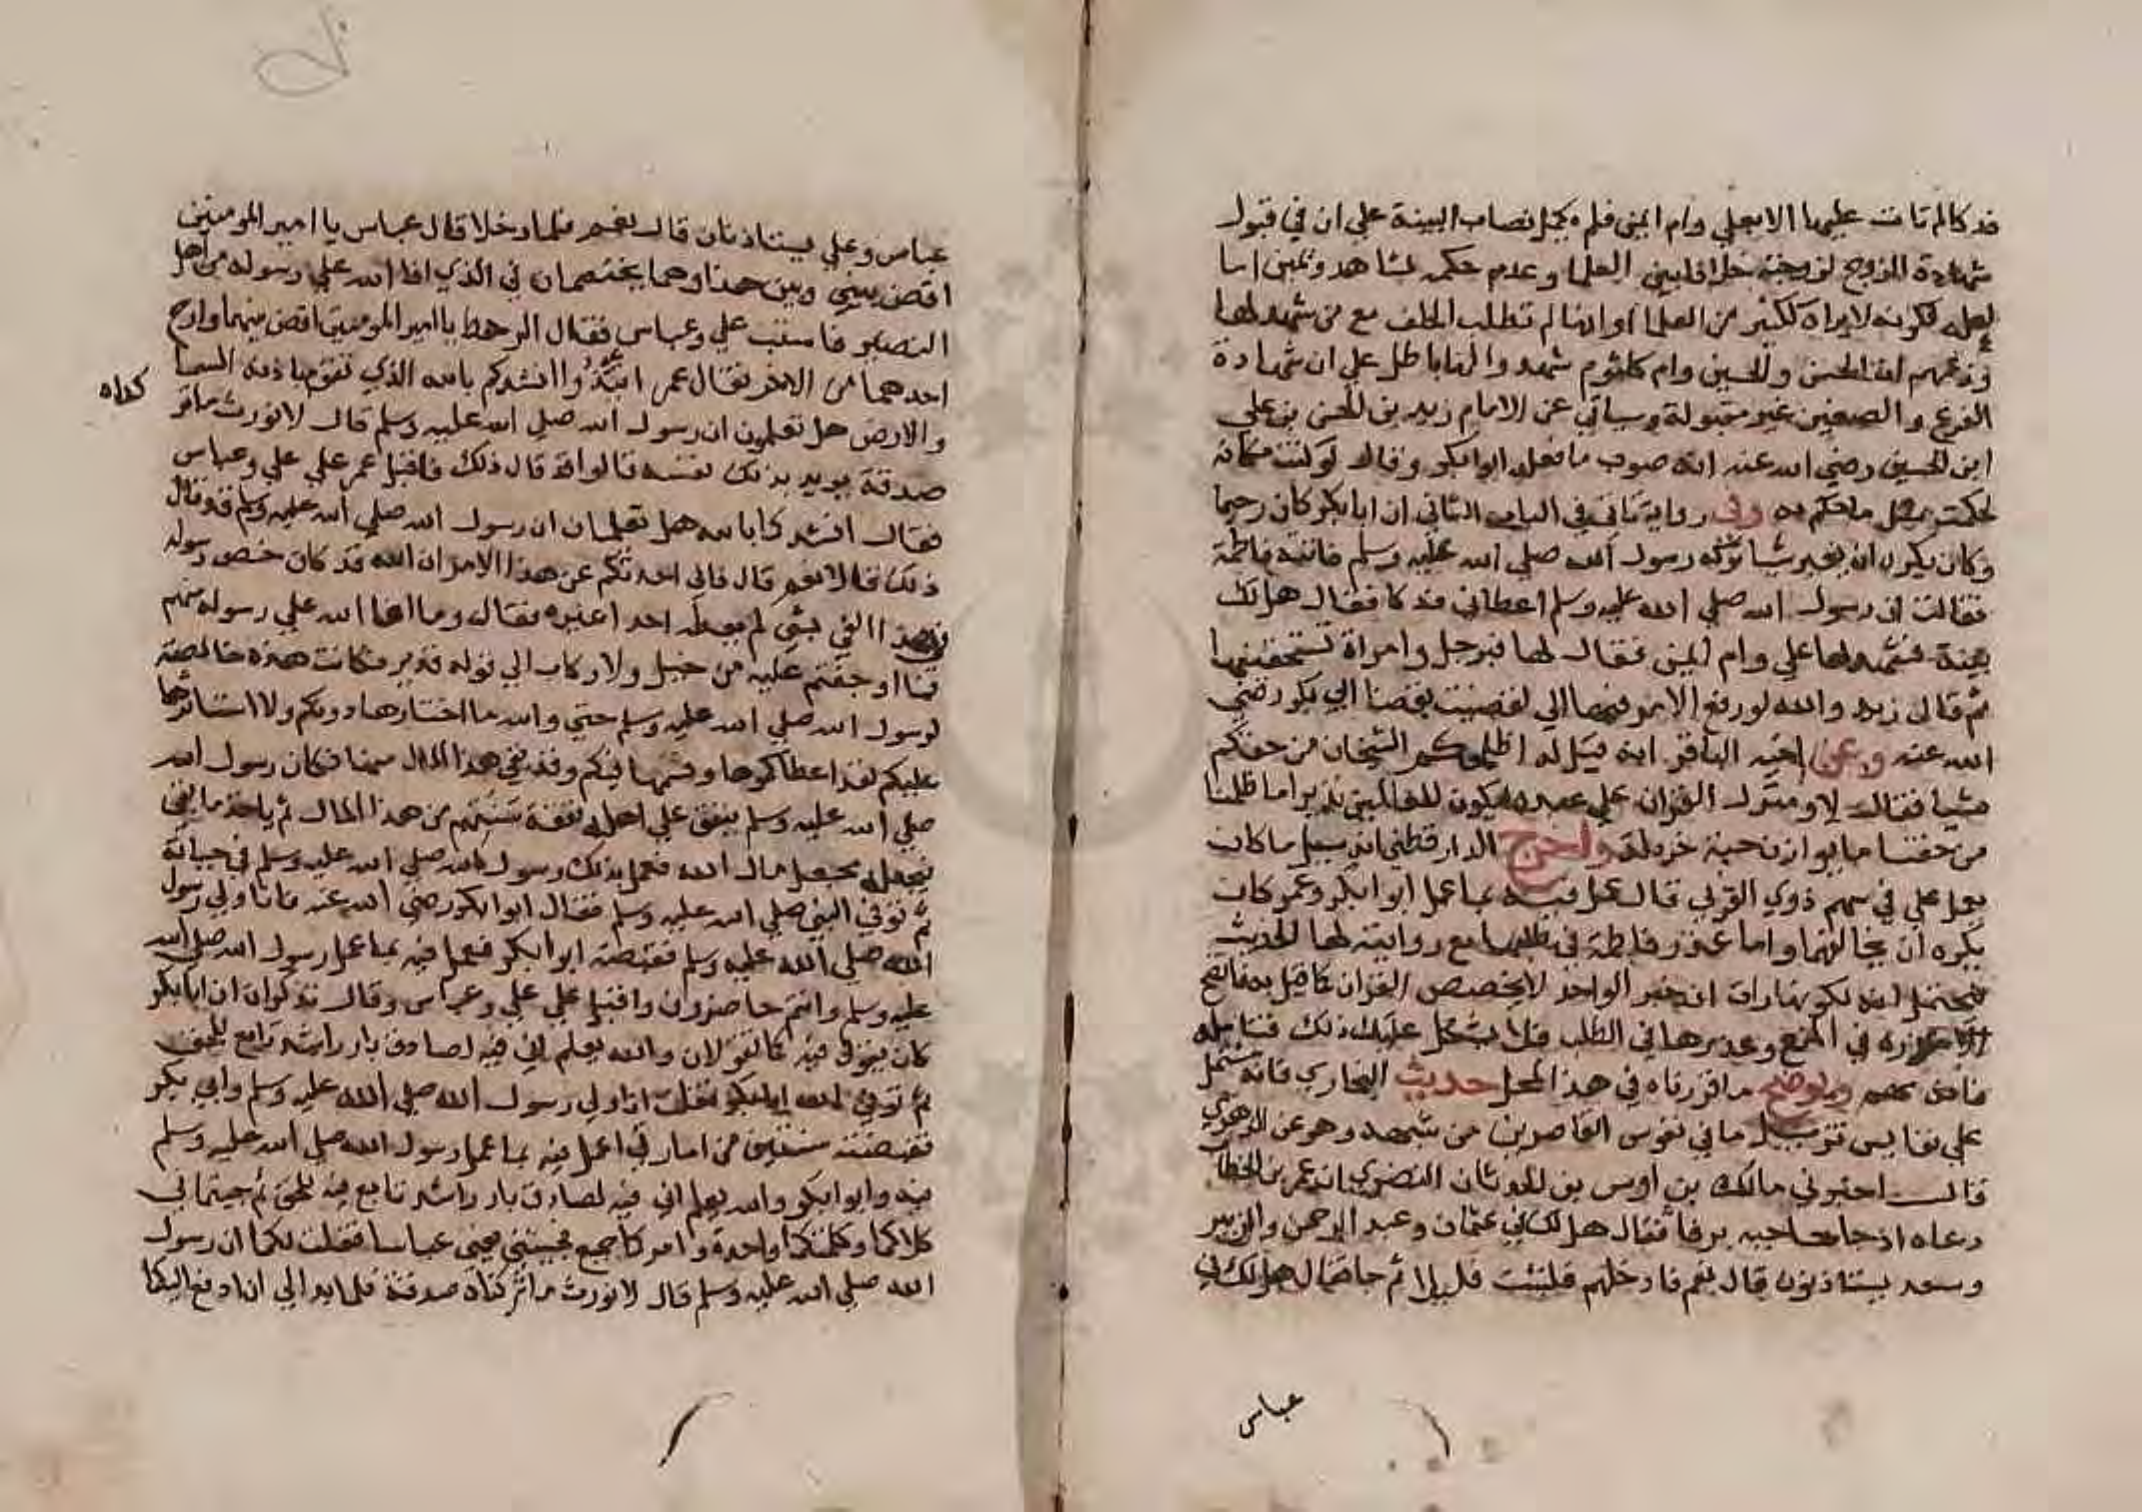 فدكا لم تات عليها الا بعلي وام ايمن فلم يكمل نصاب البينة علي ان في قبول
شهادة الزوج لزوجته خلافا بين العلما وعدم حكمه بشاهد ويمين اما
لعله لكونه لا يراه ككثير من العلما او انها لم تطلب الحلف مع من شهد لها
وزعمهم ان الحسن والحسين وام كلثوم شهدوا لها باطل علي ان شهادة
الفرع والصغير غير مقبولة وسياتي عن الامام زيد بن الحسن بن علي
ابن الحسين رضي الله عنه انه صوب ما فعله ابوابكر وقال لو كنت مكانه
لحكمت بمثل ما حكم به وفي رواية تاتي في الباب الثاني ان ابابكر كان رحيما
وكان يكره ان يغير شيا تركه رسول الله صلي الله عليه وسلم فاتته فاطمة
فقالت ان رسول الله صلي الله عليه وسلم اعطاني فدكا فقال هل لك
بينة فشهد لها علي وام ايمن فقال لها فبرجل وامراة تستحقينها
ثم قال زيد والله لو رفع الامر فيها الي لقضيت بقضا ابي بكر رضي
الله عنه وعن اخيه الباقر انه قيل له اظلمكم الشيخان من حقكم
شيا فقال لا ومنزل الفرقان علي عبده ليكون للعالمين نذيرا ما ظلمنا
من حقنا ما يوازن حبة خردلة واخرج الدارقطني انه سيل ما كان
يعمل علي في سهم ذوي القربي قال عمل فيه بما عمل ابوابكر وعمر كان
يكره ان يخالفهما واما عذر فاطمة في طلبها مع روايته لها الحديث
فيحتمل انه لكونها رات ان خبر الواحد لا يخصص القران كما قيل به فاتضح
عذره في المنع وعذرها في الطلب فلا يشكل عليك ذلك فتامله
فانه مهم ويوضح ما قررناه في هذا المحل حديث البخاري فانه مشتمل
علي نفايس تزيل ما في نفوس القاصرين من شبهه وهو عن الزهري
قال اخبرني مالك بن اوس بن الحدثان النضري ان عمر بن الخطاب
دعاه اذ جا حاجبه يرفا فقال هل لك في عثمان وعبد الرحمن والزبير
وسعد يستاذنون قال نعم فادخلهم فلبث قليلا ثم جا فقال هل لك في
عباس
عباس وعلي يستاذنان قال نعم فلما دخلا قال عباس يا امير المومنين
اقض بيني وبين هذا وهما يختصمان في الذي افا الله علي رسوله من اهل
النضير فاستب علي وعباس فقال الرهط يا امير المومنين اقض بينهما وارح
احدهما من الاخر فقال عمر انشدكم بالله الذي تقوم باذنه السما
والارض هل تعلمون ان رسول الله صلي الله عليه وسلم قال لا نورث ما تر
كناه
صدقة يريد بذلك نفسه قالوا قد قال ذلك فاقبل عمر علي علي وعباس
فقال انشدكما بالله هل تعلمان ان رسول الله صلي الله عليه وسلم قد قال
ذلك قالا نعم قال فاني احدثكم عن هذا الامر ان الله قد كان خص رسوله
في هذا الفي بشي لم يعطه احدا غيره فقال وما افا الله علي رسوله منهم
فما اوجفتم عليه من خيل ولا ركاب الي قوله قدير فكانت هذه خالصة
لرسول الله صلي الله عليه وسلم حتي والله ما احتازها دونكم ولا استاثرها
عليكم لقد اعطاكموها وقسمها فيكم وقد بقي هذا المال منها فكان رسول الله
صلي الله عليه وسلم ينفق علي اهله نفقة سنتهم من هذا المال ثم ياخذ ما بقي
فيجعله مجعل مال الله فعمل بذلك رسول الله صلي الله عليه وسلم في حياته
ثم توفي النبي صلي الله عليه وسلم فقال ابوابكر رضي الله عنه فانا ولي رسول
الله صلي الله عليه وسلم فقبضه ابوابكر فعمل فيه بما عمل رسول الله صلي الله
عليه وسلم وانتم حاضرون واقبل علي علي وعباس وقال تذكران ان ابابكر
كان فيه كما تقولان والله يعلم اني فيه لصادق بار راشد تابع للحق
ثم توفي الله ابابكر فقلت انا ولي رسول الله صلي الله عليه وسلم وابي بكر
فقبضته سنتين من امارتي اعمل فيه بما عمل رسول الله صلي الله عليه وسلم
فيه وابوابكر والله يعلم اني فيه لصادق بار راشد تابع فيه للحق ثم جيتماني
كلاكما وكلمتكما واحدة وامركما جميع فجيتني يعني عباسا فقلت لكما ان رسول
الله صلي الله عليه وسلم قال لا نورث ما تركناه صدقة فلما بدا لي ان ادفع اليكما